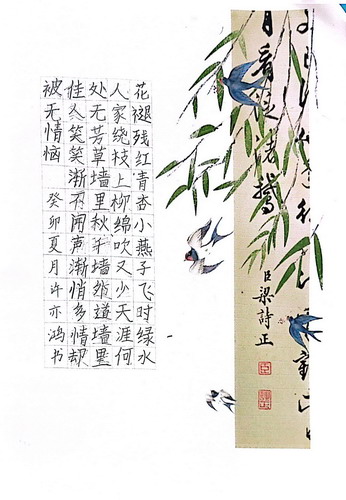 花褪残红青杏小燕子飞时绿水
人家绕枝上柳绵吹又少天涯何
处无芳草墙里秋千墙道墙里
佳人笑笑渐不闻声渐悄多情却
被无情恼 癸卯夏月许亦鸿书
臣梁詩正